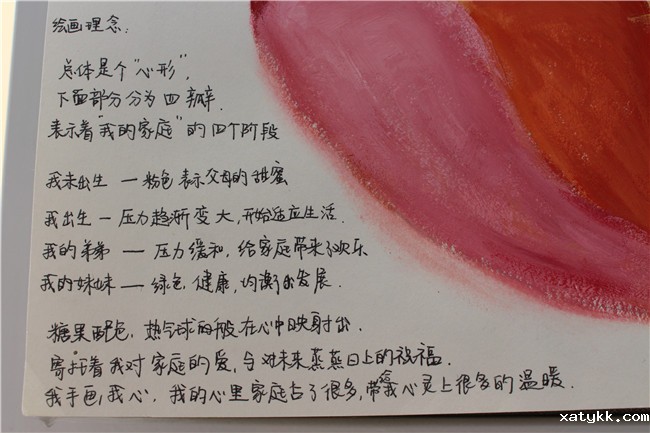 绘画理念:
总体是个"心形",
下面部分分为四瓣.
表示着"我的家庭"的四个阶段
我未出生 — 粉色表示父母的甜蜜
我出生 — 压力趋渐变大,开始适应生活.
我的弟弟 — 压力缓和,给家庭带来了欢乐
我的妹妹 — 绿色,健康,均衡的发展.
糖果配色,热气球的般在心中映射出.
寄托着我对家庭的爱,与对未来蒸蒸日上的祝福.
我手画我心,我的心里家庭占了很多,带给我心灵上很多的温暖.
xatykk.com